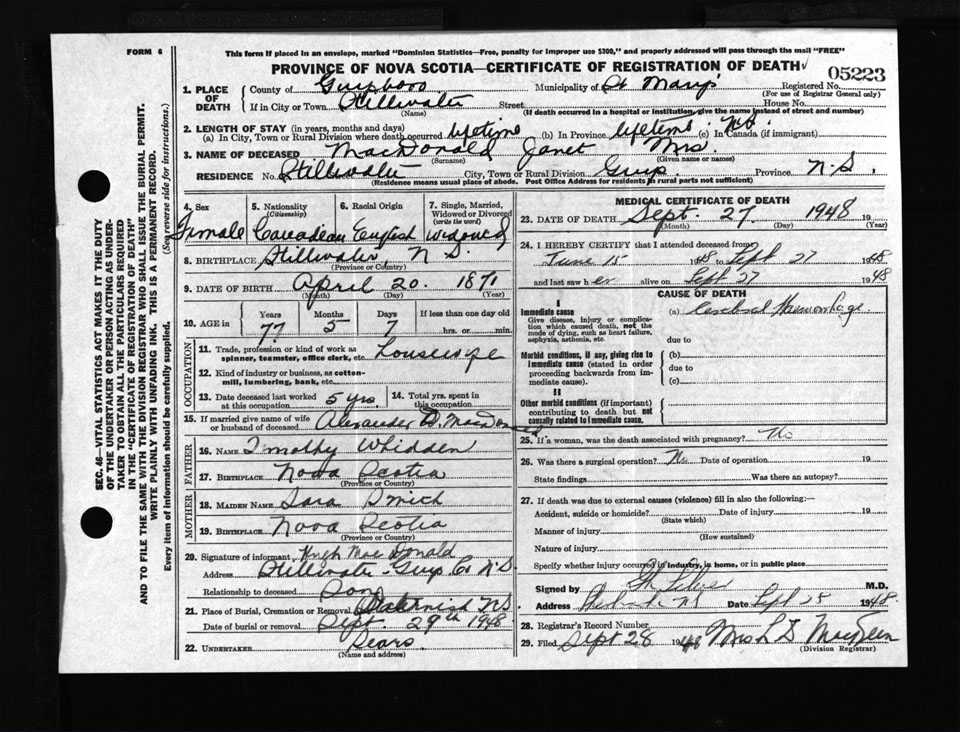 FORM 6
This form if placed in an envelope, marked "Dominion Statistics—Free, penalty for improper use $300," and properly addressed will pass through the mail "FREE"
PROVINCE OF NOVA SCOTIA—CERTIFICATE OF REGISTRATION OF DEATH
05223
SEC. 46—VITAL STATISTICS ACT MAKES IT THE DUTY
OF THE UNDERTAKER OR PERSON ACTING AS UNDER-
TAKER TO OBTAIN ALL THE PARTICULARS REQUIRED
IN THE "CERTIFICATE OF REGISTRATION OF DEATH"
AND TO FILE THE SAME WITH THE DIVISION REGISTRAR WHO SHALL ISSUE THE BURIAL PERMIT.
WRITE PLAINLY WITH UNFADING INK. THIS IS A PERMANENT RECORD.
Every item of information should be carefully supplied. (See reverse side for instructions.)
1. PLACE OF DEATH
County of Guysboro Municipality of St Mary's Registered No.
(For use of Registrar General only)
If in City or Town Stillwater Street House No.
(Name) (If death occurred in a hospital or institution, give the name instead of street and number)
2. LENGTH OF STAY (in years, months and days)
(a) In City, Town or Rural Division where death occurred lifetime (b) In Province lifetime (c) In Canada (if immigrant)
3. NAME OF DECEASED MacDonald Janet Mrs.
(Surname) (Given name or names)
RESIDENCE No. Stillwater City, Town or Rural Division Guys. Province N.S.
(Residence means usual place of abode. Post Office Address for residents in rural parts not sufficient)
4. Sex Female
5. Nationality (Citizenship) Canadian
6. Racial Origin English
7. Single, Married, Widowed or Divorced (write the word) Widowed
8. BIRTHPLACE Stillwater, N.S.
(Province or Country)
9. DATE OF BIRTH April 20. 1871
(Month) (Day) (Year)
10. AGE in Years 77 Months 5 Days 7 If less than one day old hrs. or min.
OCCUPATION
11. Trade, profession or kind of work as spinner, teamster, office clerk, etc. Housewife
12. Kind of industry or business, as cotton-mill, lumbering, bank, etc.
13. Date deceased last worked at this occupation 5 yrs.
14. Total yrs. spent in this occupation
15. If married give name of wife or husband of deceased Alexander D. MacDonald
FATHER
16. Name Timothy Whidden
17. Birthplace Nova Scotia
(Province or Country)
MOTHER
18. Maiden Name Sara
19. Birthplace Nova Scotia
(Province or Country)
20. Signature of informant Hugh MacDonald
Address Stillwater - Guys Co N.S.
Relationship to deceased Son
21. Place of Burial, Cremation or Removal N.S
Date of burial or removal Sept. 29th 1948
22. UNDERTAKER Sears
(Name and address)
MEDICAL CERTIFICATE OF DEATH
23. DATE OF DEATH Sept. 27 1948 19
(Month) (Day) (Year)
24. I HEREBY CERTIFY that I attended deceased from
June 15 1948 to Sept 27 1948
and last saw her alive on Sept 27 1948
CAUSE OF DEATH
I
Immediate cause
Give disease, injury or complication which caused death, not the mode of dying, such as heart failure, asphyxia, asthenia, etc.
(a) Cerebral Haemorrhage
due to
Morbid conditions, if any, giving rise to immediate cause (stated in order proceeding backwards from immediate cause).
(b)
due to
(c)
II
Other morbid conditions (if important) contributing to death but not causally related to immediate cause.
25. If a woman, was the death associated with pregnancy? No
26. Was there a surgical operation? No Date of operation 19
State findings Was there an autopsy?
27. If death was due to external causes (violence) fill in also the following:—
Accident, suicide or homicide? Date of injury 19
(State which)
Manner of injury
(How sustained)
Nature of injury
Specify whether injury occurred in industry, in home, or in public place
Signed by M.D.
Address NS Date Sept 28 1948
28. Registrar's Record Number
29. Filed Sept 28 1948 Mrs L D
(Division Registrar)